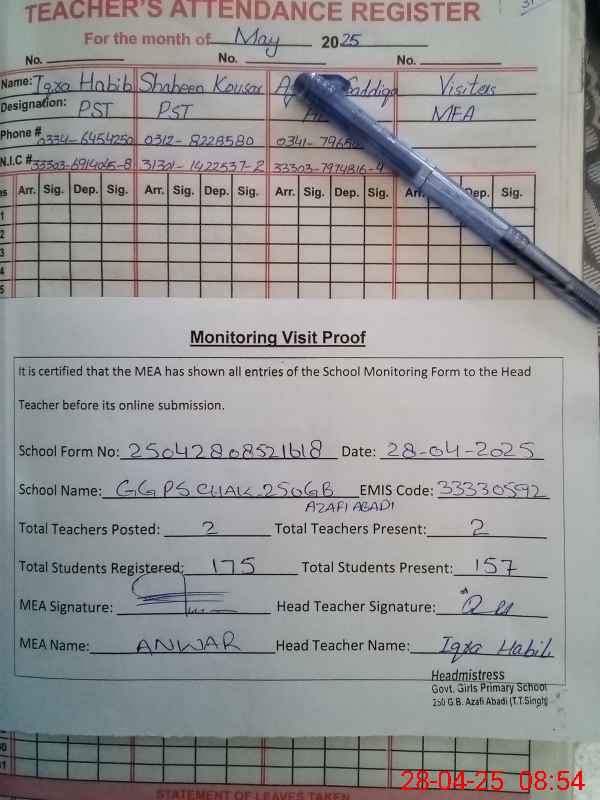 TEACHER'S ATTENDANCE REGISTER
For the month of May 2025
No. No. No.
Name: Iqra Habib Shaheen Kousar Visiters
Designation: PST PST MEA
Phone # 0334-6454250 0312-8228580 0341-
N.I.C # 33303-6914045-8 31301-1422537-2 33303-7974816-4
Arr. Sig. Dep. Sig. Arr. Sig. Dep. Sig. Arr. Sig. Dep. Sig. Arr. Dep. Sig.
1
2
3
4
5
Monitoring Visit Proof
It is certified that the MEA has shown all entries of the School Monitoring Form to the Head
Teacher before its online submission.
School Form No: 25042808521618 Date: 28-04-2025
School Name: GGPS CHAK 250GB EMIS Code: 33330592
AZAFI ABADI
Total Teachers Posted: 2 Total Teachers Present: 2
Total Students Registered: 175 Total Students Present: 157
MEA Signature: Head Teacher Signature:
MEA Name: ANWAR Head Teacher Name: Iqra Habib
Headmistress
Govt. Girls Primary School
250 G.B. Azafi Abadi (T.T.Singh)
STATEMENT OF LEAVES TAKEN
28-04-25 08:54